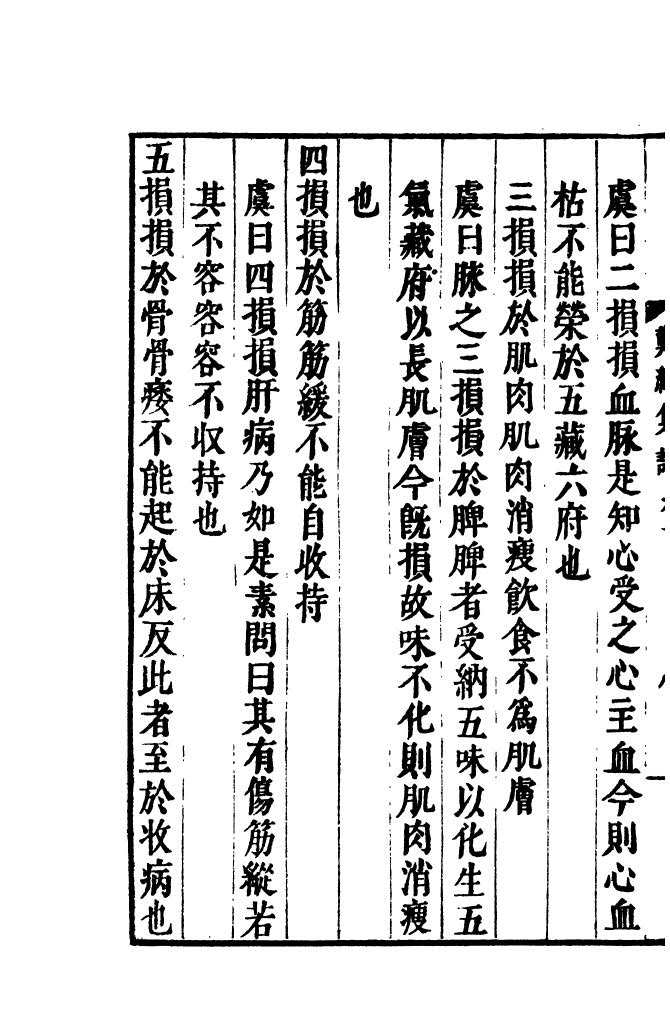 虞曰二損損血脉是知心受之心主血今則心血
枯不能榮於五藏六府也
三損損於肌肉肌肉消瘦飲食不爲肌膚
虞曰脉之三損損於脾脾者受納五味以化生五
氣藏府以長肌膚今旣損故味不化則肌肉消瘦
也
四損損於筋筋緩不能自收持
虞曰四損損肝病乃如是素問曰其有傷筋縱若
其不容容容不収持也
五損損於骨骨痿不能起於床反此者至於收病也